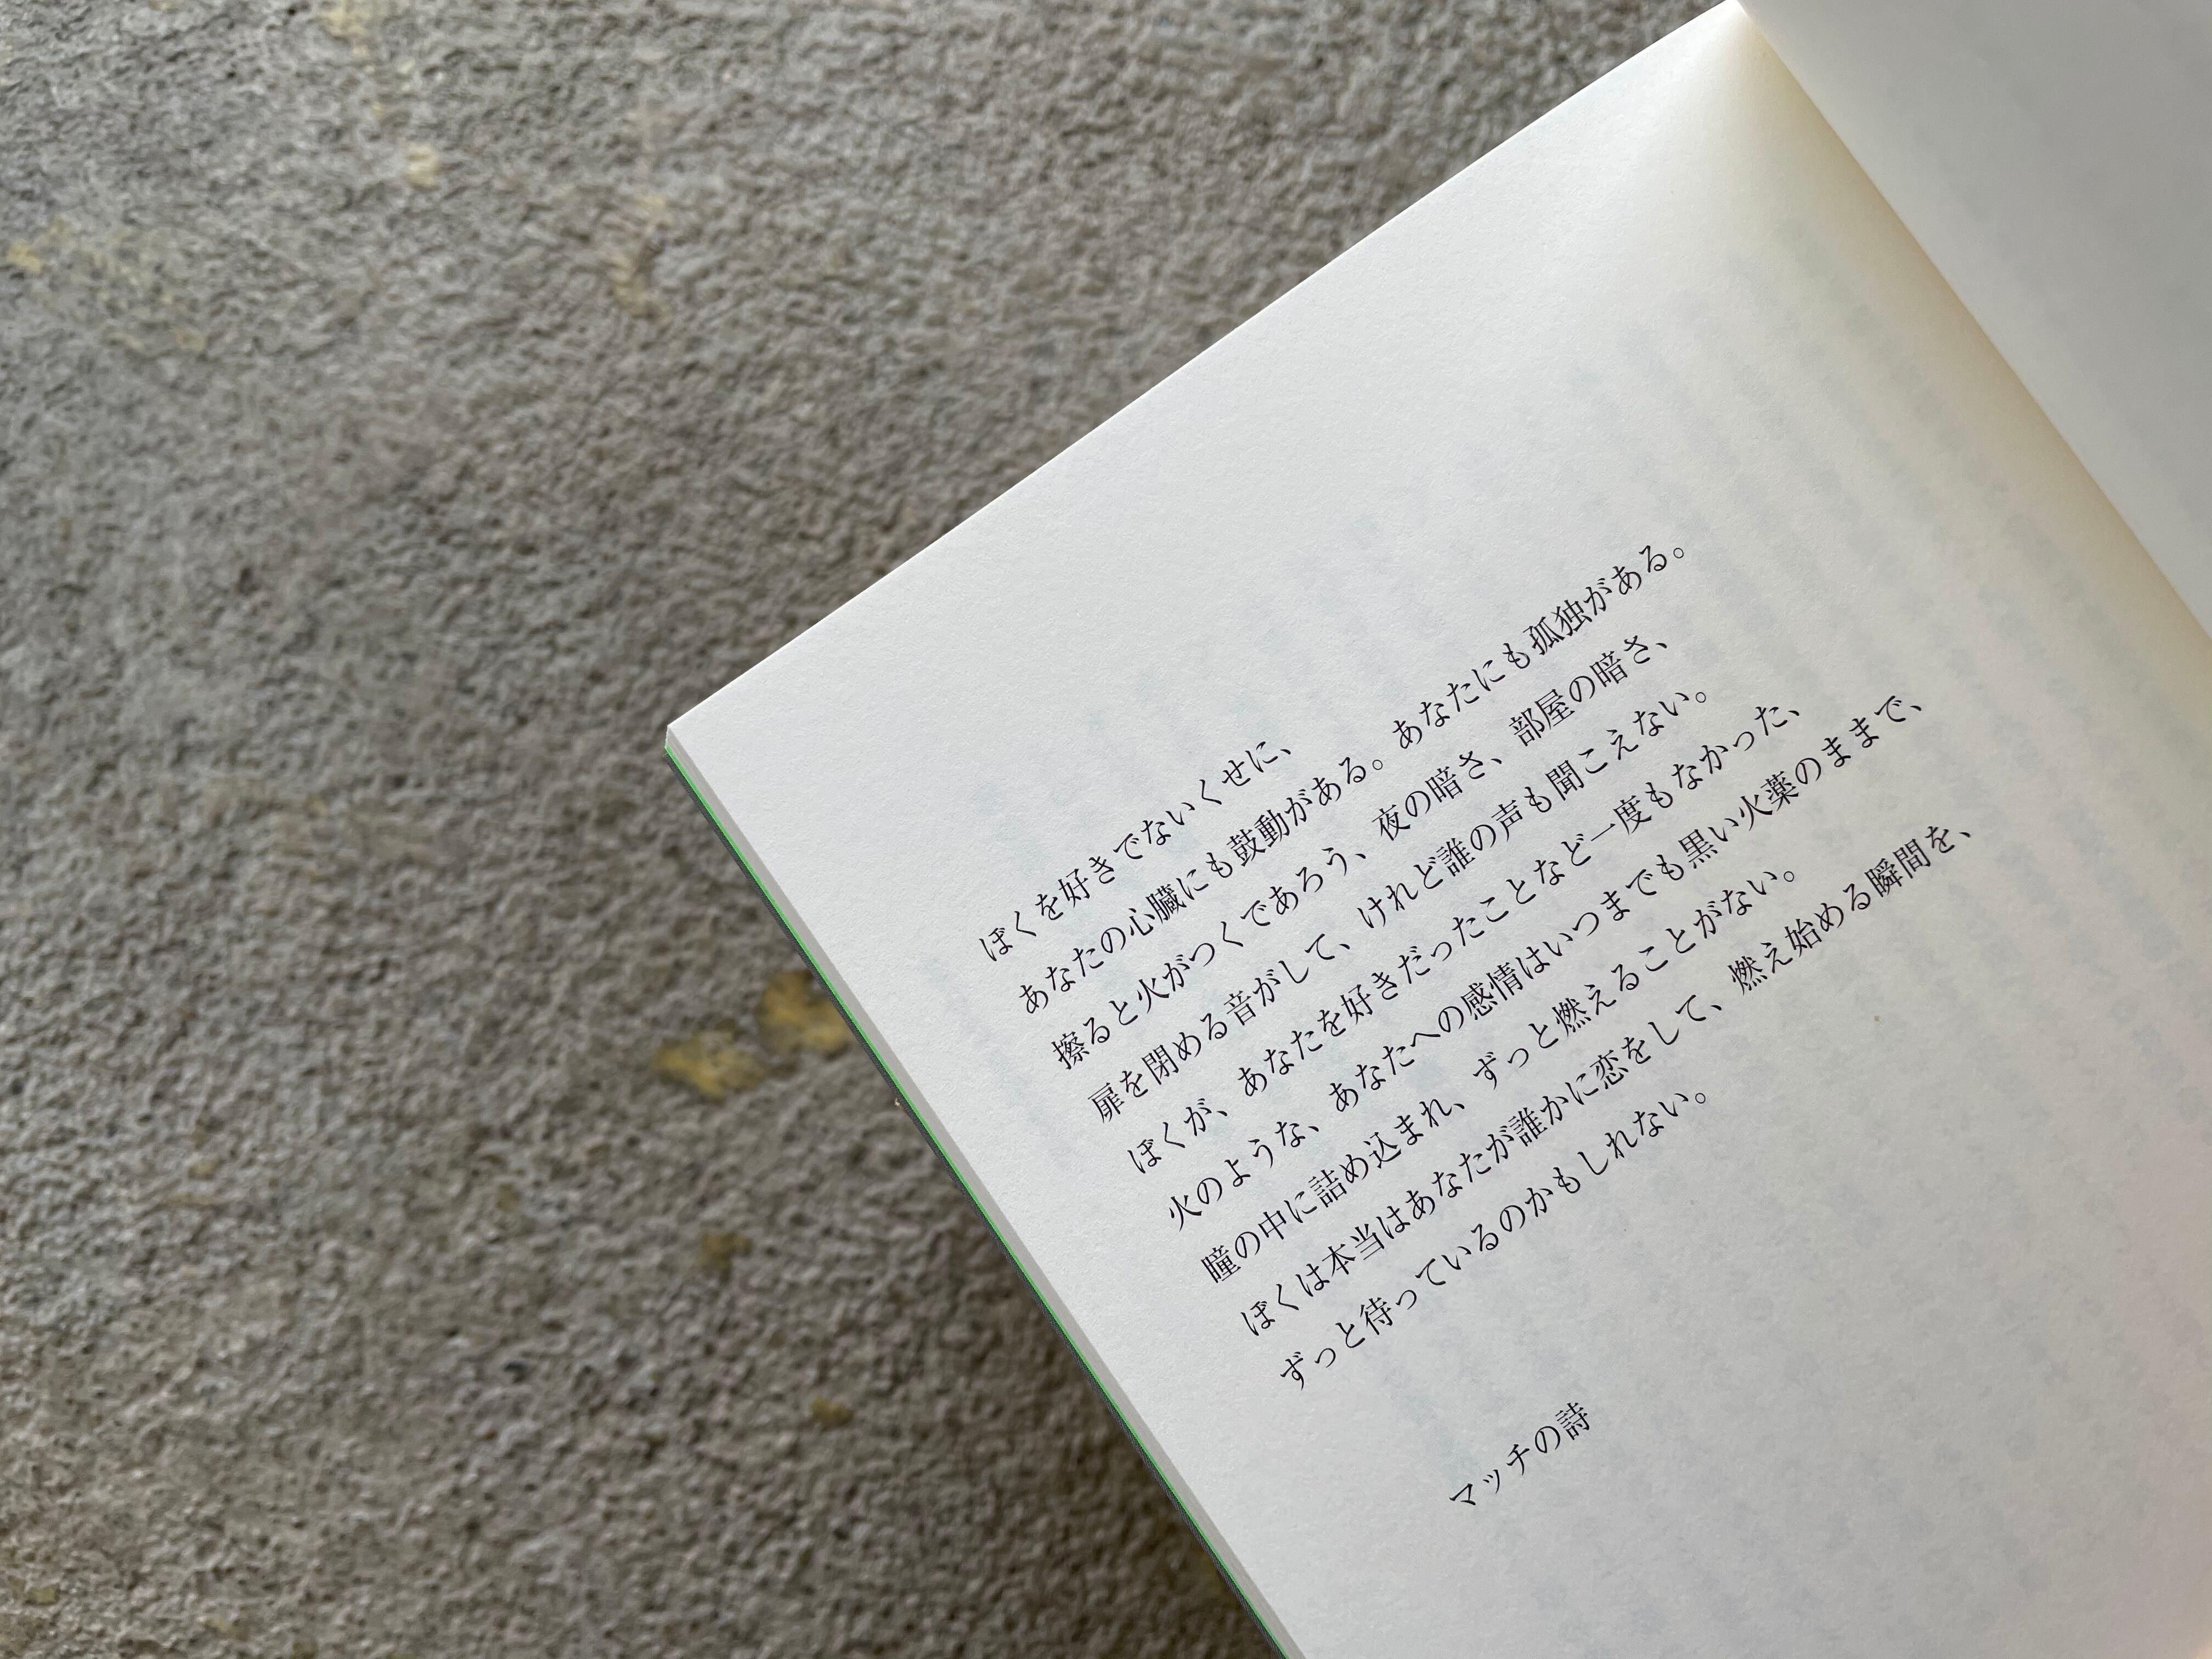 ぼくを好きでないくせに、
あなたの心臓にも鼓動がある。あなたにも孤独がある。
擦ると火がつくであろう、夜の暗さ、部屋の暗さ、
扉を閉める音がして、けれど誰の声も聞こえない。
ぼくが、あなたを好きだったことなど一度もなかった、
火のような、あなたへの感情はいつまでも黒い火薬のままで、
瞳の中に詰め込まれ、ずっと燃えることがない。
ぼくは本当はあなたが誰かに恋をして、燃え始める瞬間を、
ずっと待っているのかもしれない。
マッチの詩